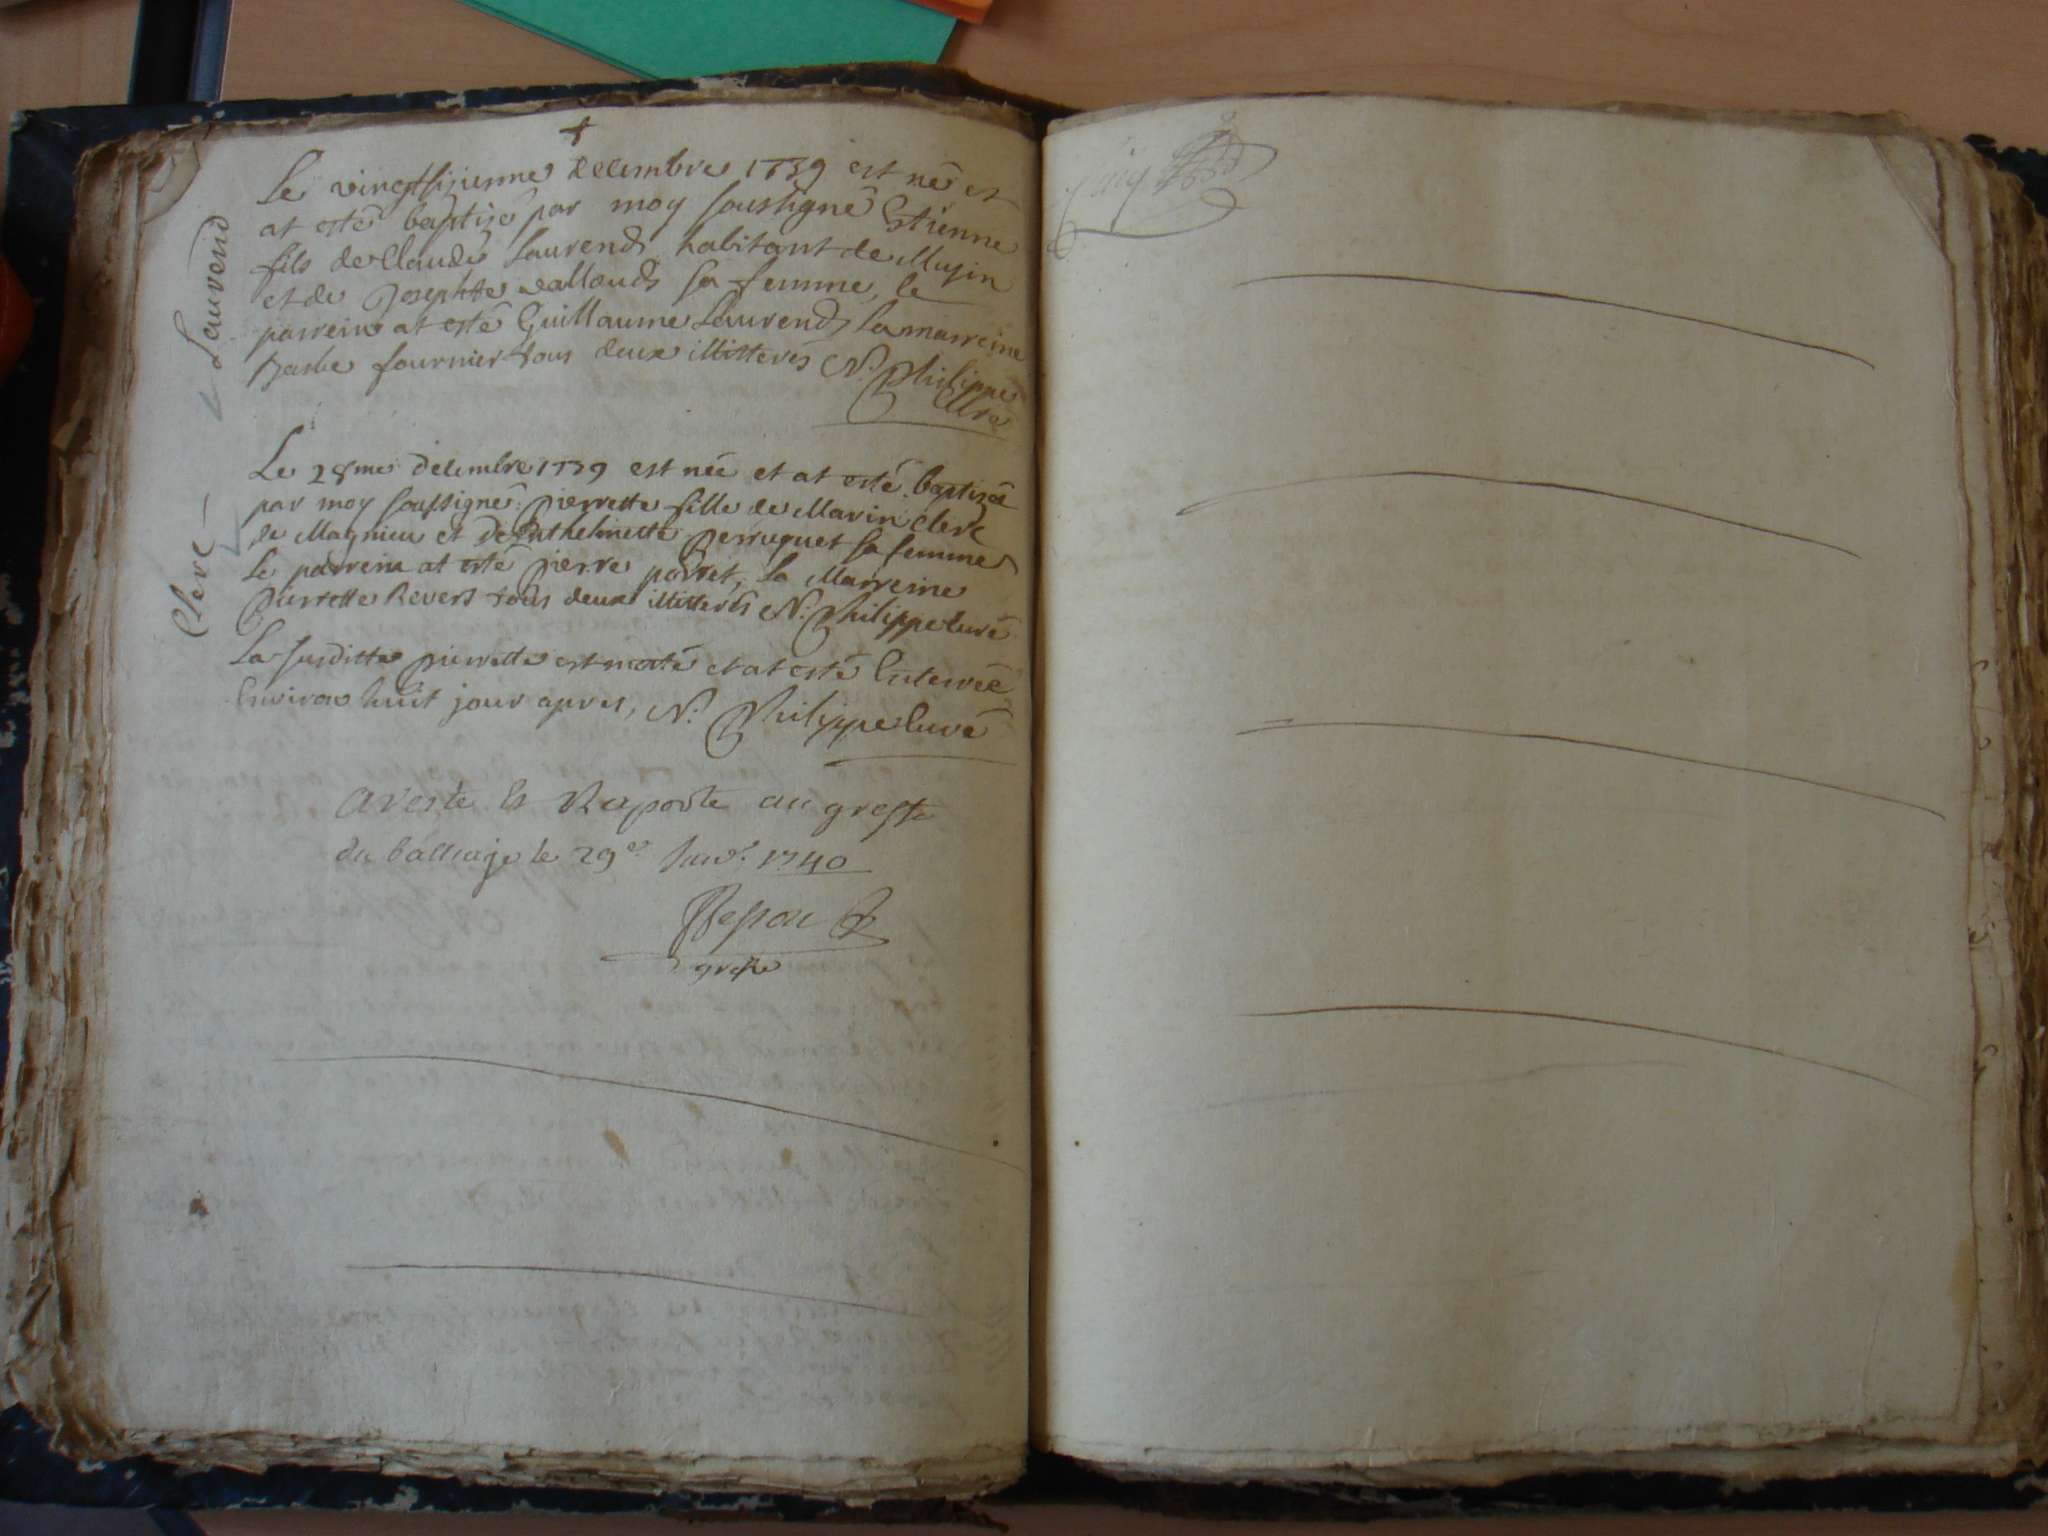 Laurend
Le vingtsizienne decembre 1739 est né et
at esté baptisé par moy soussigné Estienne
fils de Claude Laurend habitant de Musin
et de Josephte valloud sa femme, le
parrein at esté Guillaume Laurend la marreine
Barbe fournier tous deux illitterés N. Philippe
Curé
Clerc
Le 28me decembre 1739 est née et at esté baptisée
par moy soussigné pierrette fille de Marin Clerc
de Magnieu et de Anthelmette perruquet sa femme
Le parrein at esté pierre poiret, la Marreine
pierrette Revers tous deux illitterés N. Philippe Curé
La susditte pierrette est morte et at esté Enterrée
Environ huit jour apres, N. Philippe Curé
a reste et Raporte au greffe
du balliage le 29e Janv. 1740
greffe